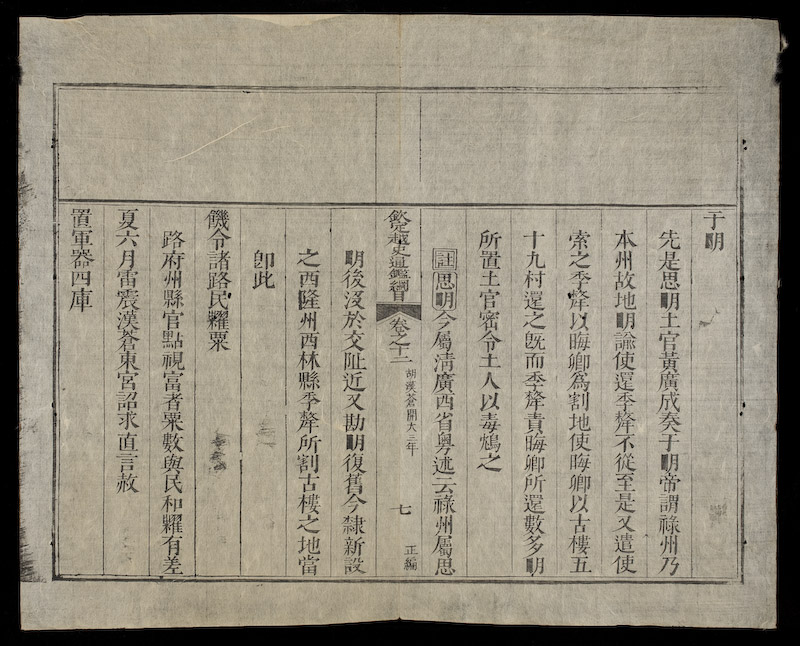 于明
先是思明土官黃廣成奏于明帝謂祿州乃
本州故地明諭使還季犛不從至是又遣使
索之季犛以晦卿為割地使晦卿以古樓五
十九村還之旣而季犛責晦卿所還數多明
所置土官密令土人以毒鴆之
註思明今屬淸廣西省粤述云祿州屬思
欽定越史通鑑綱目 卷之十二 胡漢蒼開大三年 七 正編
明後沒於交阯近又勘明復舊今隸新設
之西隆州西林縣季犛所割古樓之地當
卽此
饑令諸路民糶粟
路府州縣官點視富者粟數與民和糶有差
夏六月雷震漢蒼東宮詔求直言赦
置軍器四庫